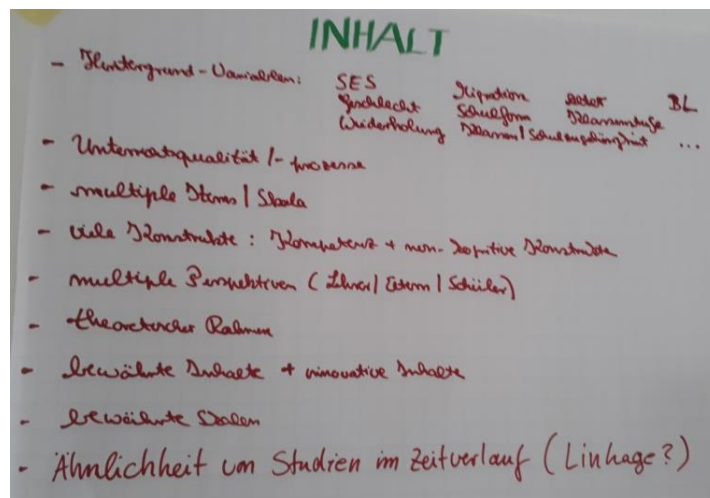 INHALT
- Hintergrund-Variablen: SES Migration Alter BL
Geschlecht Schulform Klassenstufe
Wiederholung Klassen/Schulzugehörigkeit ...
- Unterrichtsqualität/-prozesse
- multiple Items/Skala
- viele Konstrukte: Kompetenz + non-kognitive Konstrukte
- multiple Perspektiven (Lehrer/Eltern/Schüler)
- theoretischer Rahmen
- bewährte Inhalte + innovative Inhalte
- bewährte Skalen
- Ähnlichkeit von Studien im Zeitverlauf (Linkage?)